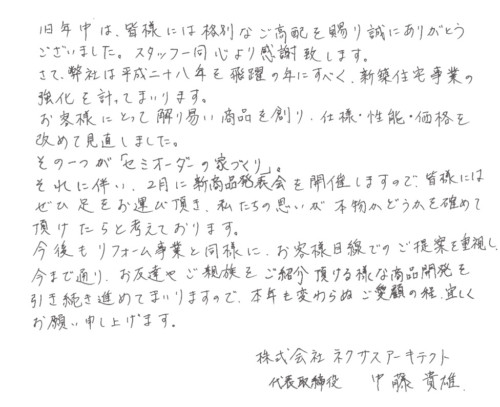 旧年中は、皆様には格別なご高配を賜り誠にありがとう
ございました。スタッフ一同心より感謝致します。
さて、弊社は平成二十八年を飛躍の年にすべく、新築住宅事業の
強化を計ってまいります。
お客様にとって解り易い商品を創り、仕様・性能・価格を
改めて見直しました。
その一つが「セミオーダーの家づくり」。
それに伴い、2月に新商品発表会を開催しますので、皆様には
ぜひ足をお運び頂き、私たちの思いが本物かどうかを確めて
頂けたらと考えております。
今後もリフォーム事業と同様に、お客様目線でのご提案を重視し、
今まで通り、お友達やご親族をご紹介頂ける様な商品開発を
引き続き進めてまいりますので、本年も変わらぬご愛顧の程、宜しく
お願い申し上げます。
株式会社ネクサスアーキテクト
代表取締役 中藤貴雄